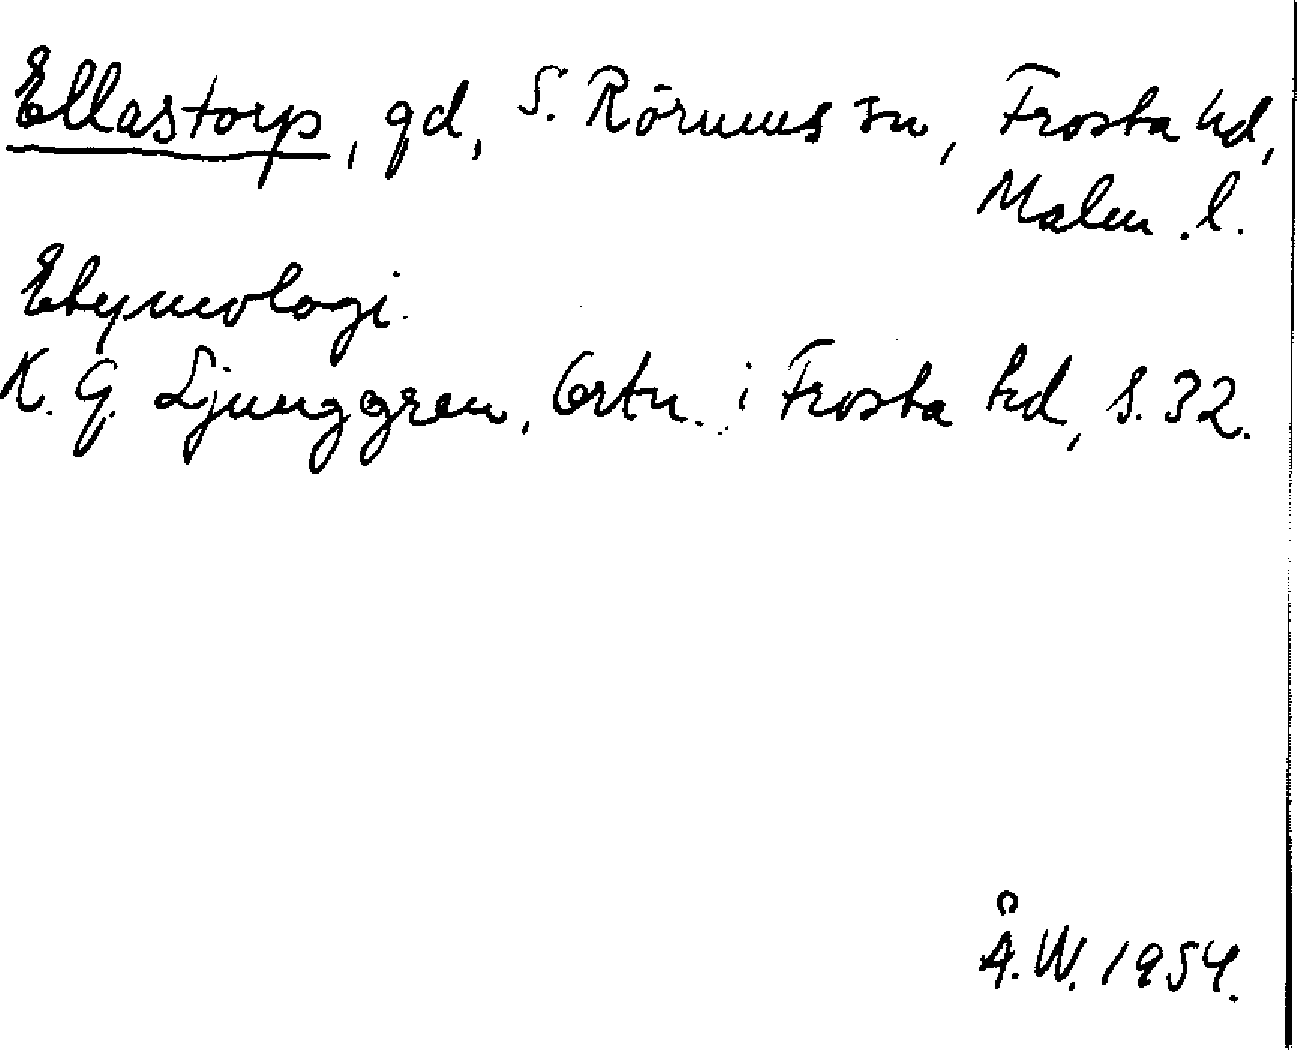 Ellastorp, gd, S. Rörums sn, Frosta hd,
Malm. l.
Etymologi.
K. G. Ljunggren, Ortn. i Frosta hd, s. 32.
Å. W. 1954.